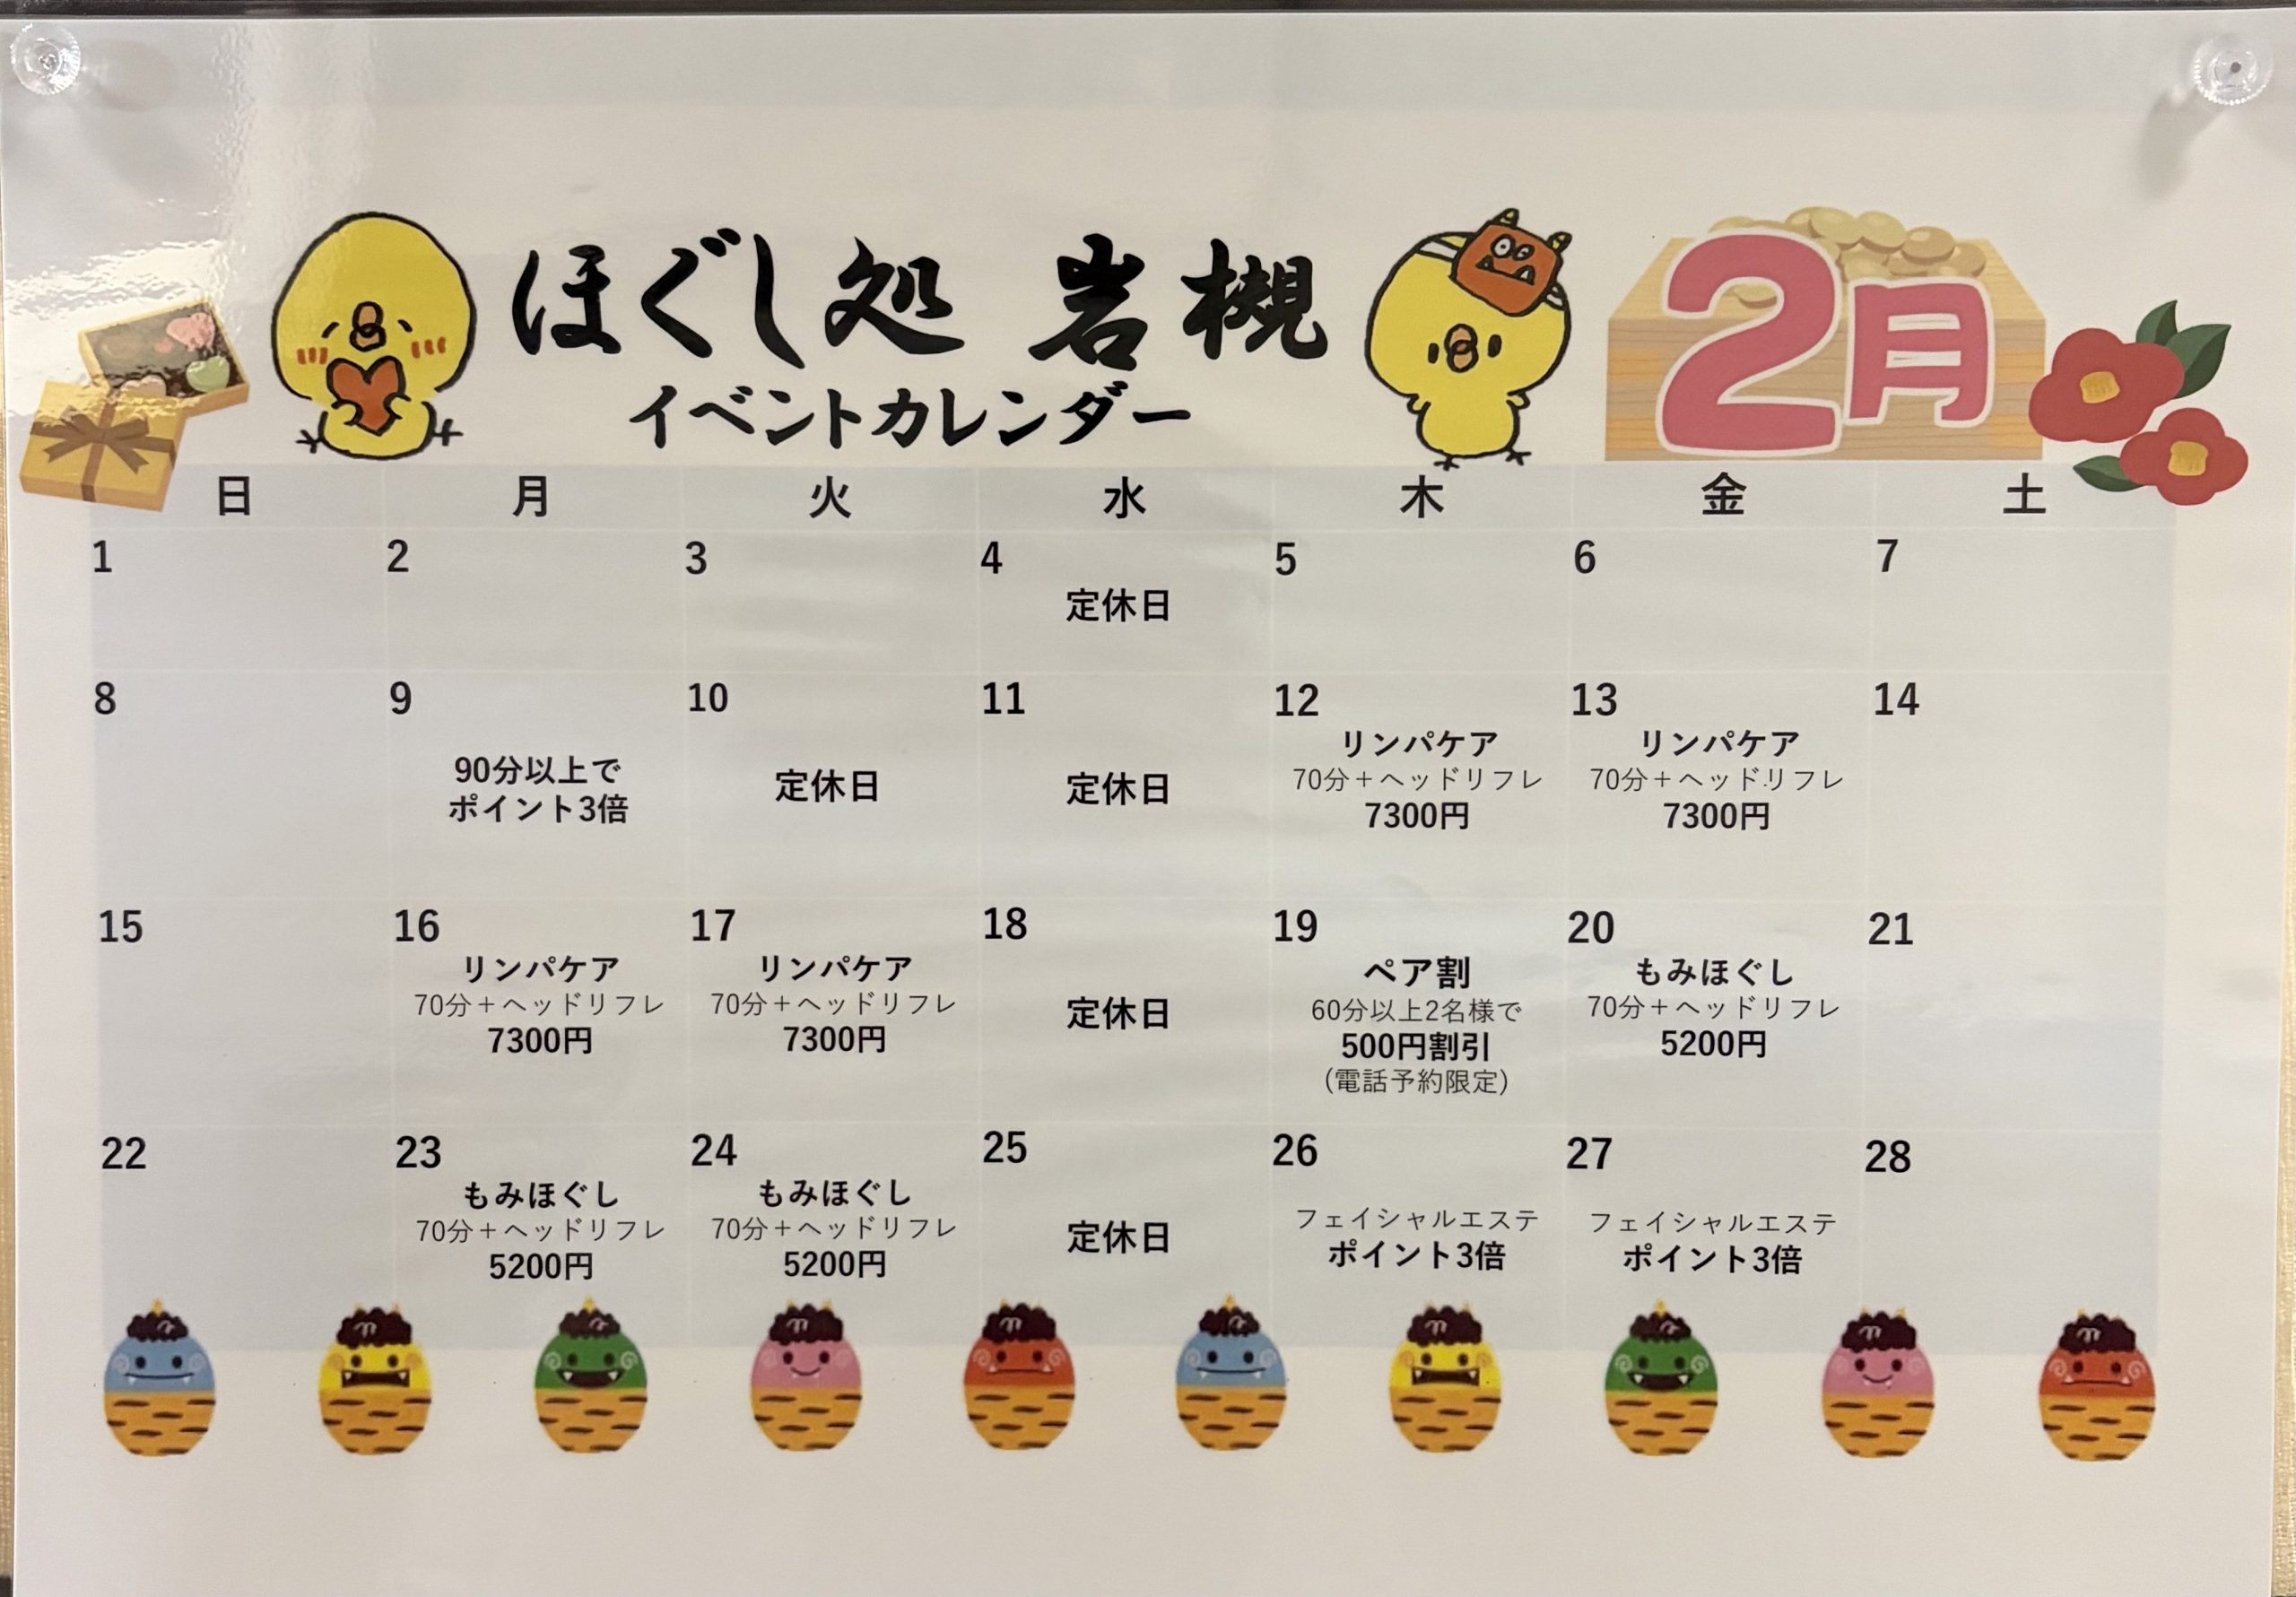 ほぐし処 岩槻
イベントカレンダー
2月
日 月 火 水 木 金 土
1 2 3 4 5 6 7
定休日
8 9 10 11 12 13 14
90分以上で
ポイント3倍
定休日
定休日
リンパケア
70分＋ヘッドリフレ
7300円
リンパケア
70分＋ヘッドリフレ
7300円
15 16 17 18 19 20 21
リンパケア
70分＋ヘッドリフレ
7300円
リンパケア
70分＋ヘッドリフレ
7300円
定休日
ペア割
60分以上2名様で
500円割引
(電話予約限定)
もみほぐし
70分＋ヘッドリフレ
5200円
22 23 24 25 26 27 28
もみほぐし
70分＋ヘッドリフレ
5200円
もみほぐし
70分＋ヘッドリフレ
5200円
定休日
フェイシャルエステ
ポイント3倍
フェイシャルエステ
ポイント3倍